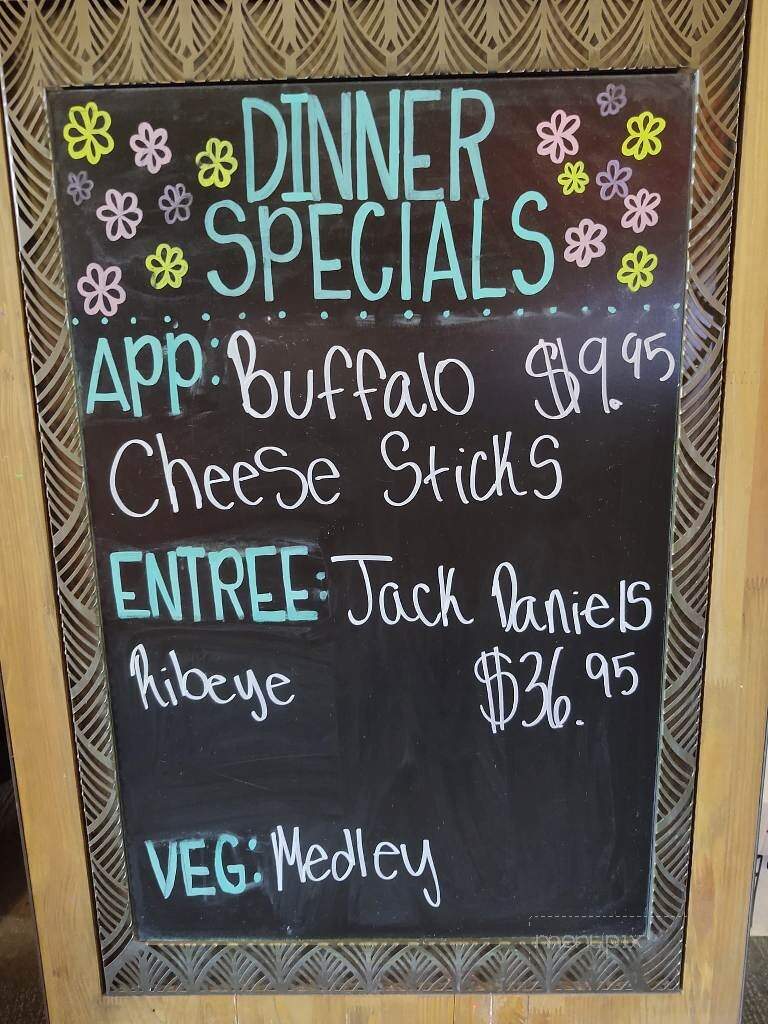 DINNER
SPECIALS
APP: Buffalo $9.95
Cheese Sticks
ENTREE: Jack Daniels
Ribeye $36.95
VEG: Medley
menupix